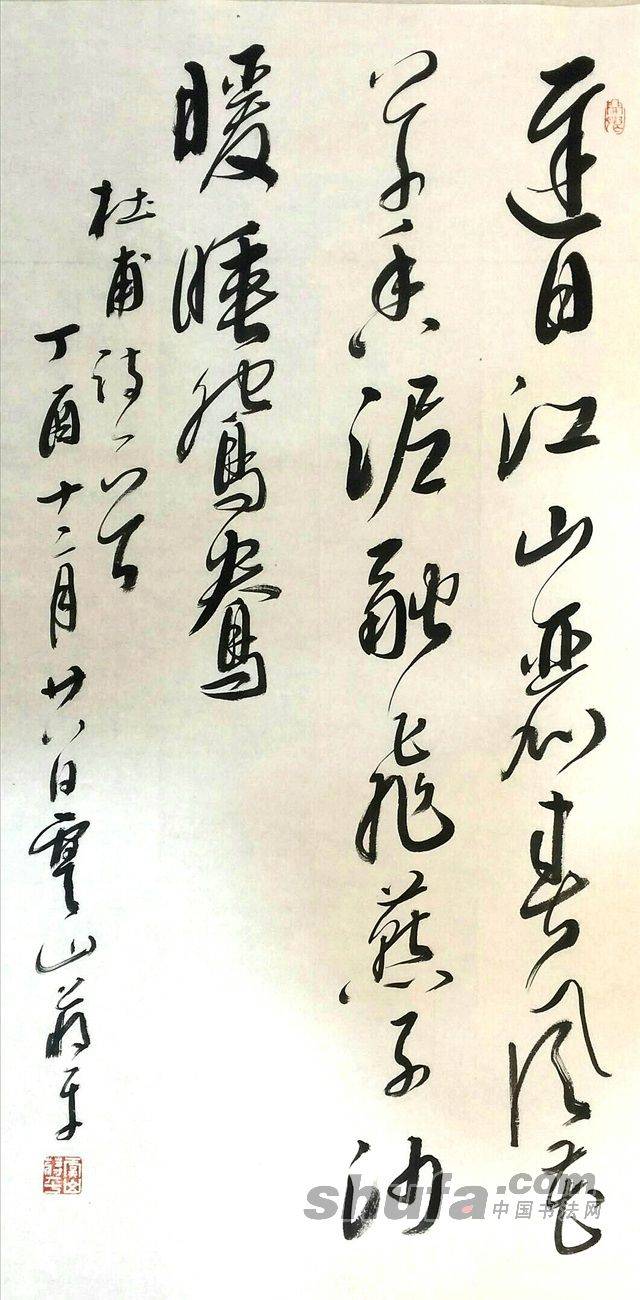 遲日江山麗春風花
草香泥融飛燕子沙
暖睡鴛鴦
杜甫詩一首
丁酉十二月廿八日山蔣平
shufa.com
中国书法网